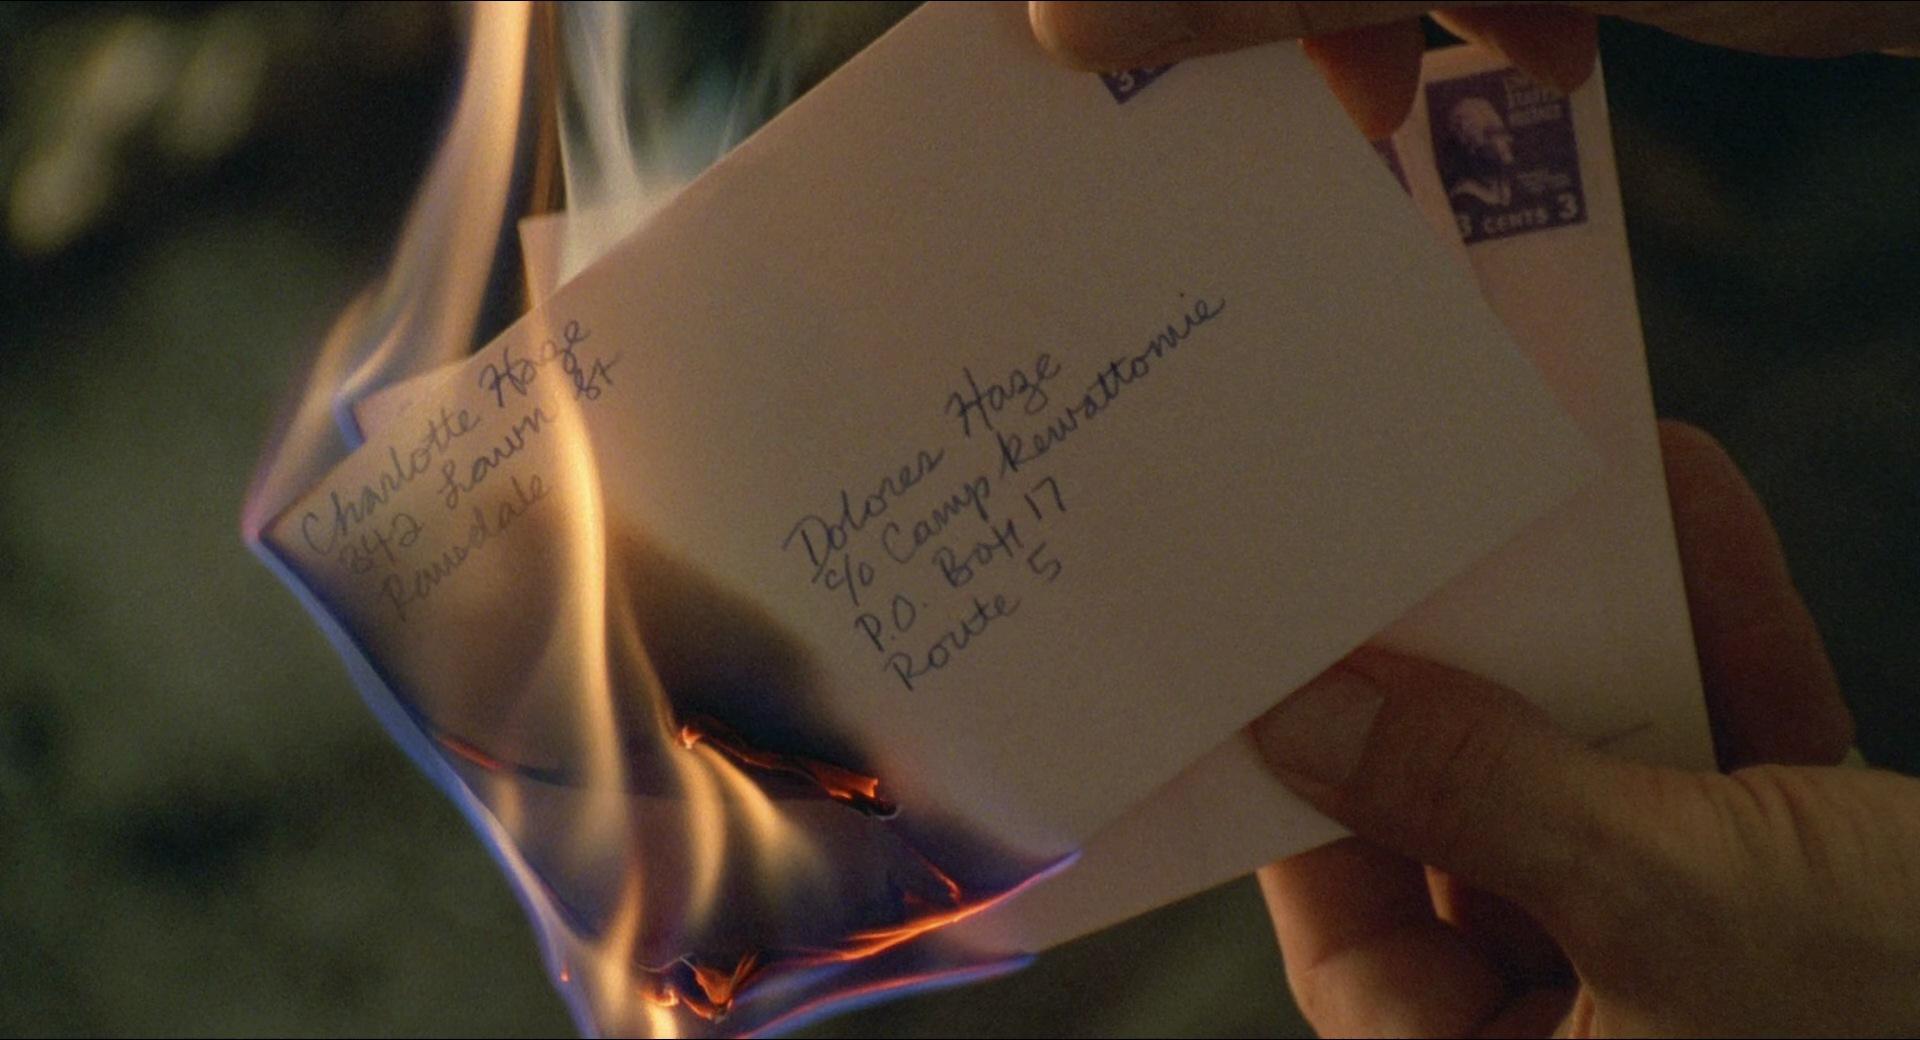 Charlotte Haze
342 Lawn St
Ramsdale
Dolores Haze
c/o Camp Kewattomie
P.O. Box 17
Route 5
3
3 CENTS 3